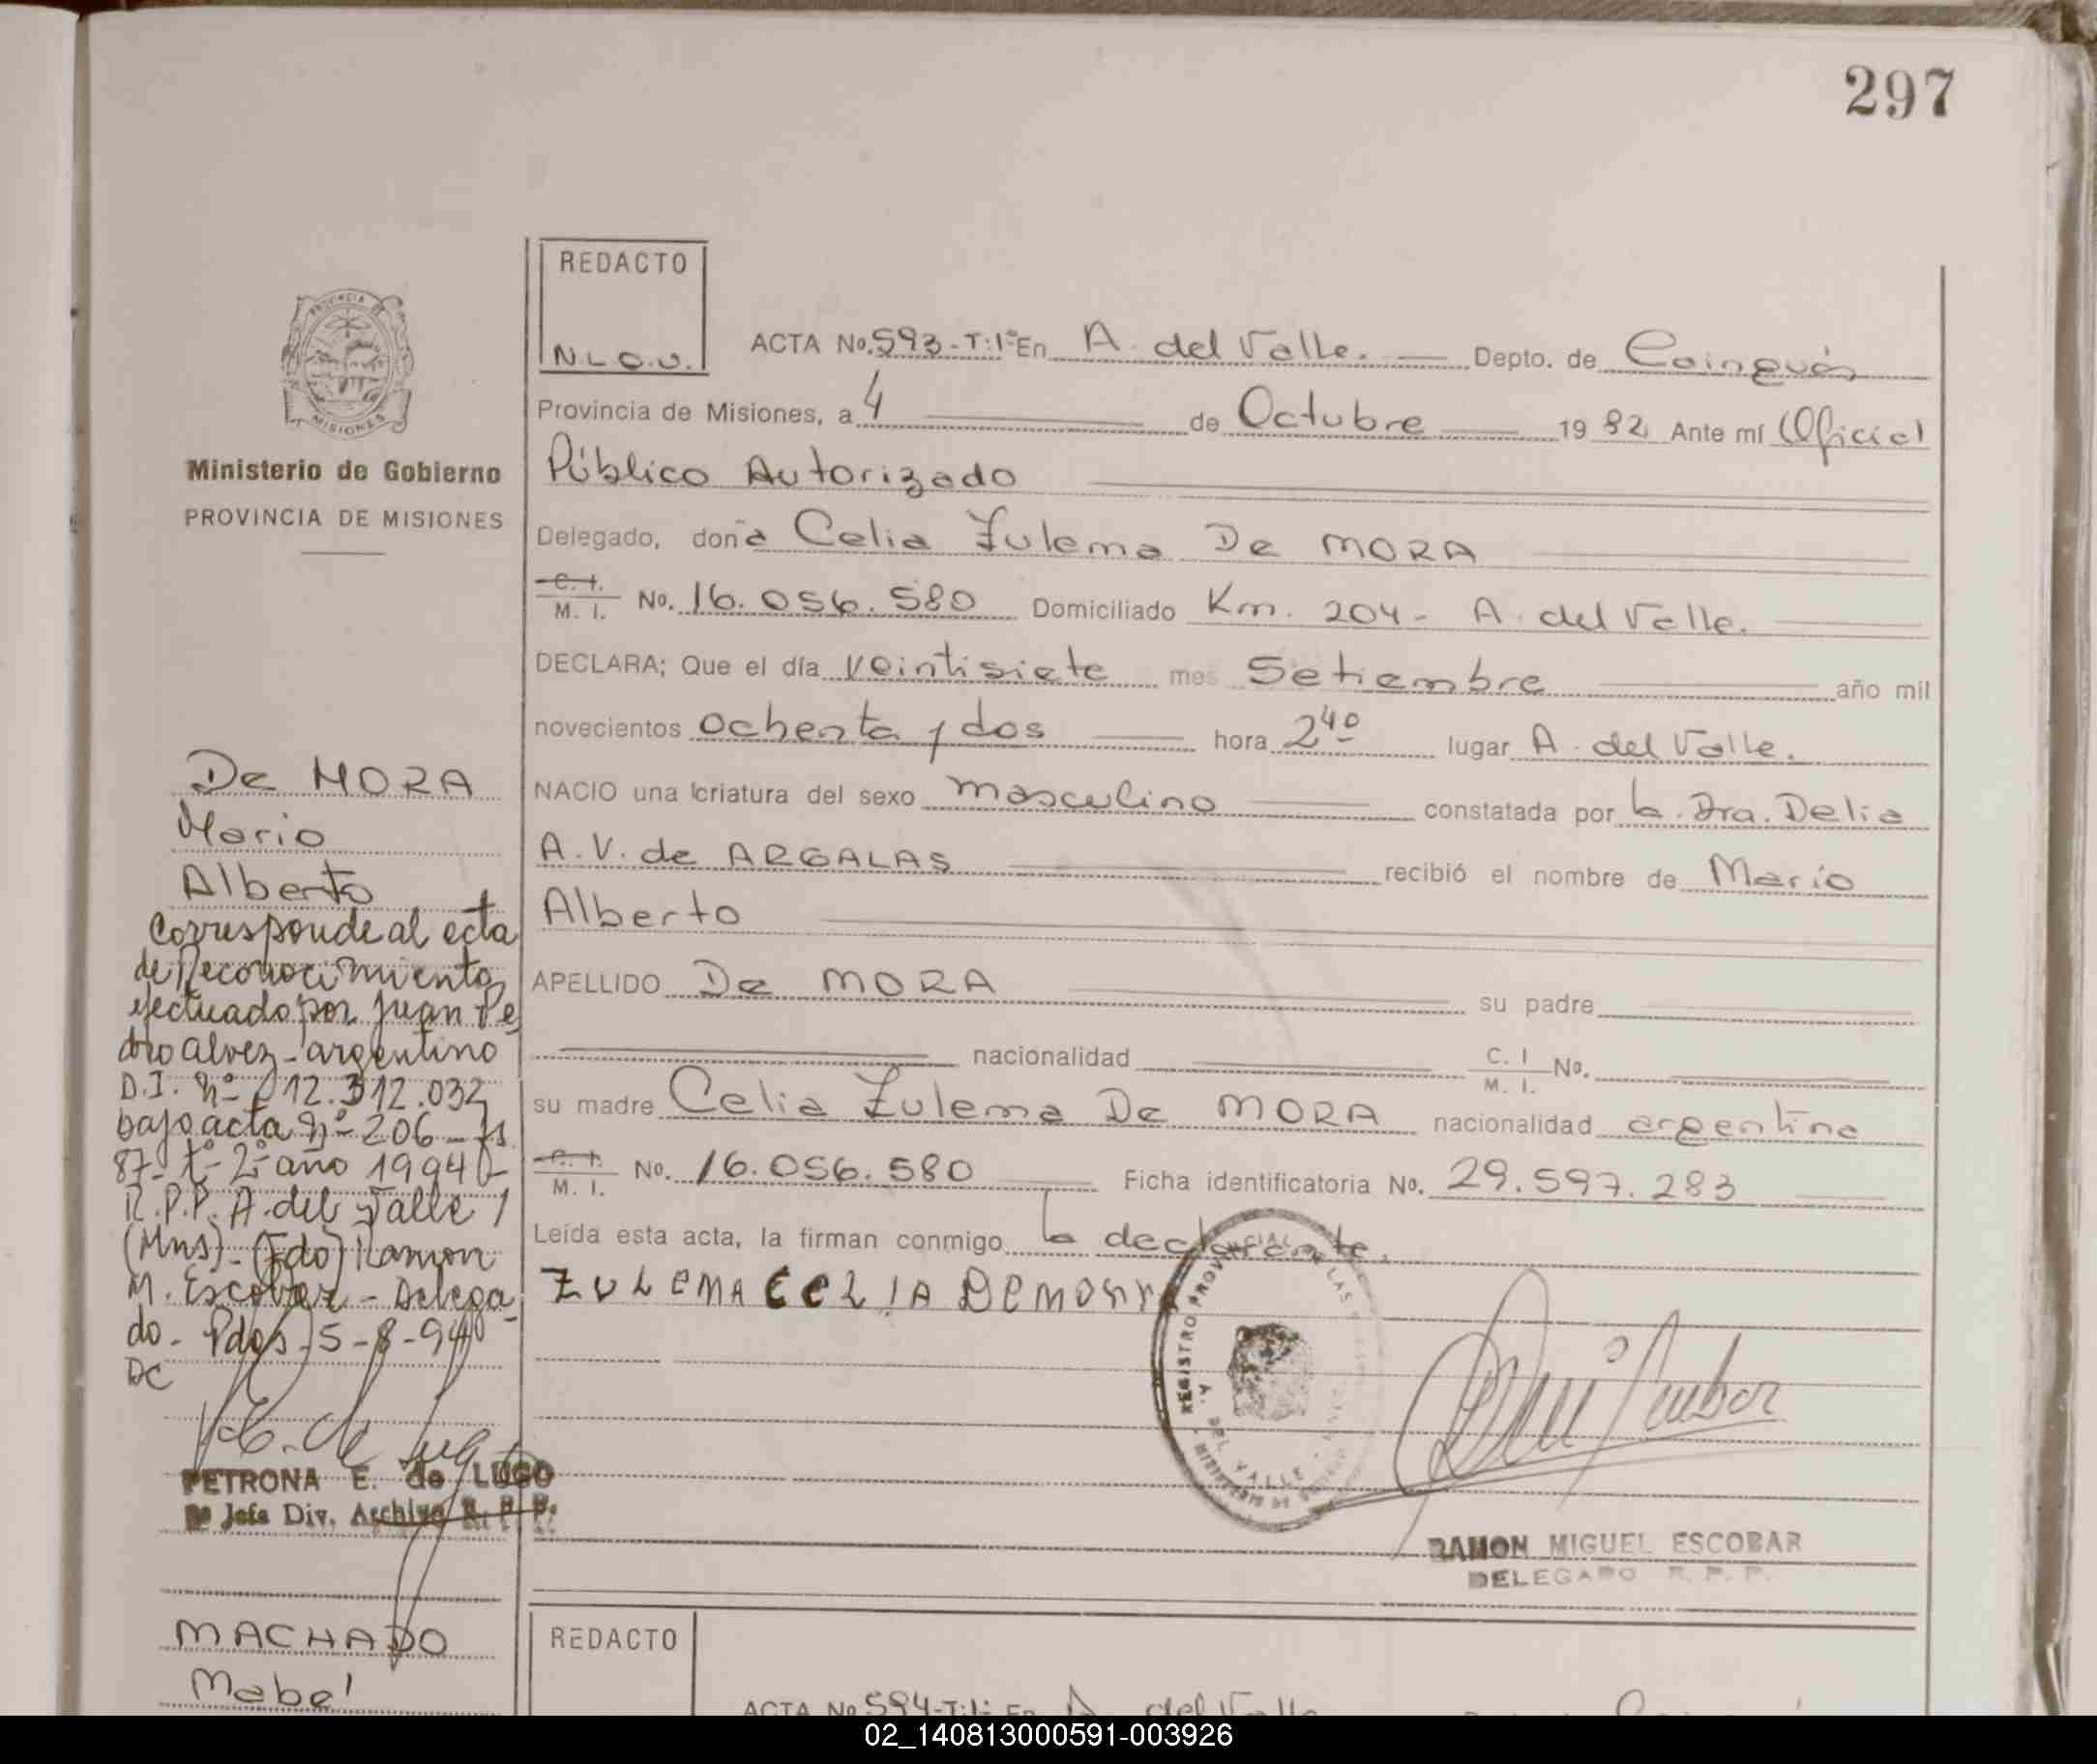 297
REDACTO
N.L.O.U.
ACTA No. 593-T:1º En A. del Valle. Depto. de Cainguás
Provincia de Misiones, a 4 de Octubre 1982 Ante mí Oficial
Público Autorizado
Delegado, doña Celia Zulema De MORA
C. I. M. I. No. 16.056.580 Domiciliado Km. 204- A. del Valle.
DECLARA; Que el día veintisiete mes Setiembre año mil
novecientos ochenta y dos hora 2 40 lugar A. del Valle.
NACIO una criatura del sexo masculino constatada por la Dra. Delia
A.V. de ARGALAS recibió el nombre de Mario
Alberto
APELLIDO De MORA su padre
nacionalidad C. I M. I. No.
su madre Celia Zulema De MORA nacionalidad argentina
C. I. M. I. No. 16.056.580 Ficha identificatoria No. 29.597.283
Leída esta acta, la firman conmigo la declarante.
ZULEMA CELIA DEMORA
REGISTRO PROVINCIAL DE LAS
DEL VALLE
MINISTERIO DE
RAMON MIGUEL ESCOBAR
DELEGADO R. P. P.
PROVINCIA DE
MISIONES
Ministerio de Gobierno
PROVINCIA DE MISIONES
De MORA
Mario
Alberto
Corresponde al acta
de Reconocimiento
efectuado por Juan Pe
dro Alvez - argentino
D.I. nº 12.312.032
bajo acta nº 206 - fs
87 - tº 2º año 1994
R.P.P. A. del Valle
(Mns) - (Fdo) Ramon
M. Escobar - Delega
do - Pdas. 5-8-94
DC
PETRONA E. de LUGO
Jefa Div. Archivo R. P. P.
MACHADO
Mabel
REDACTO
ACTA No 594-T:1: En A. del Valle
02_140813000591-003926